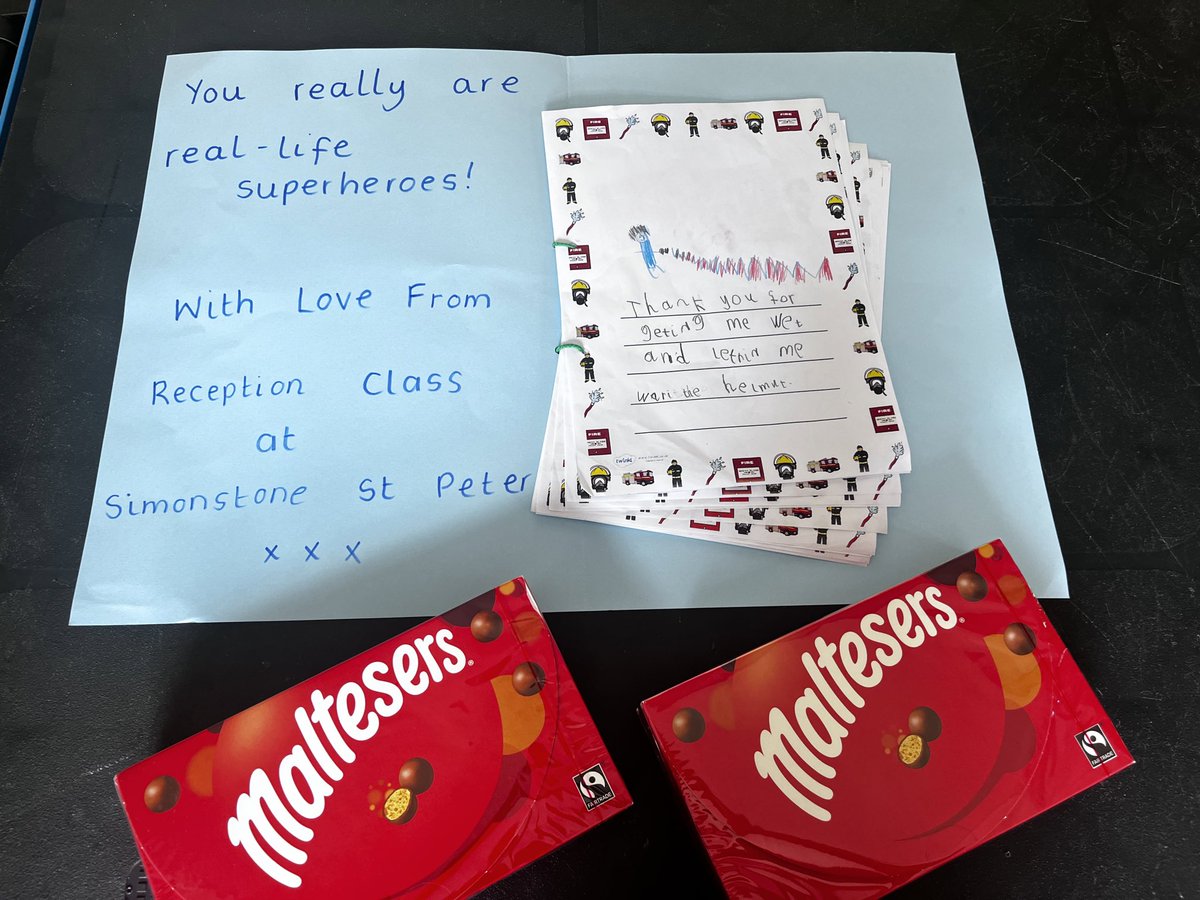 You really are
real-life
superheroes!
With Love From
Reception Class
at
Simonstone St Peter
x x x
Thank you for
geting me wet
and letnin me
wari the helmut.
twinkl
Maltesers
FAIRTRADE
Maltesers
FAIRTRADE